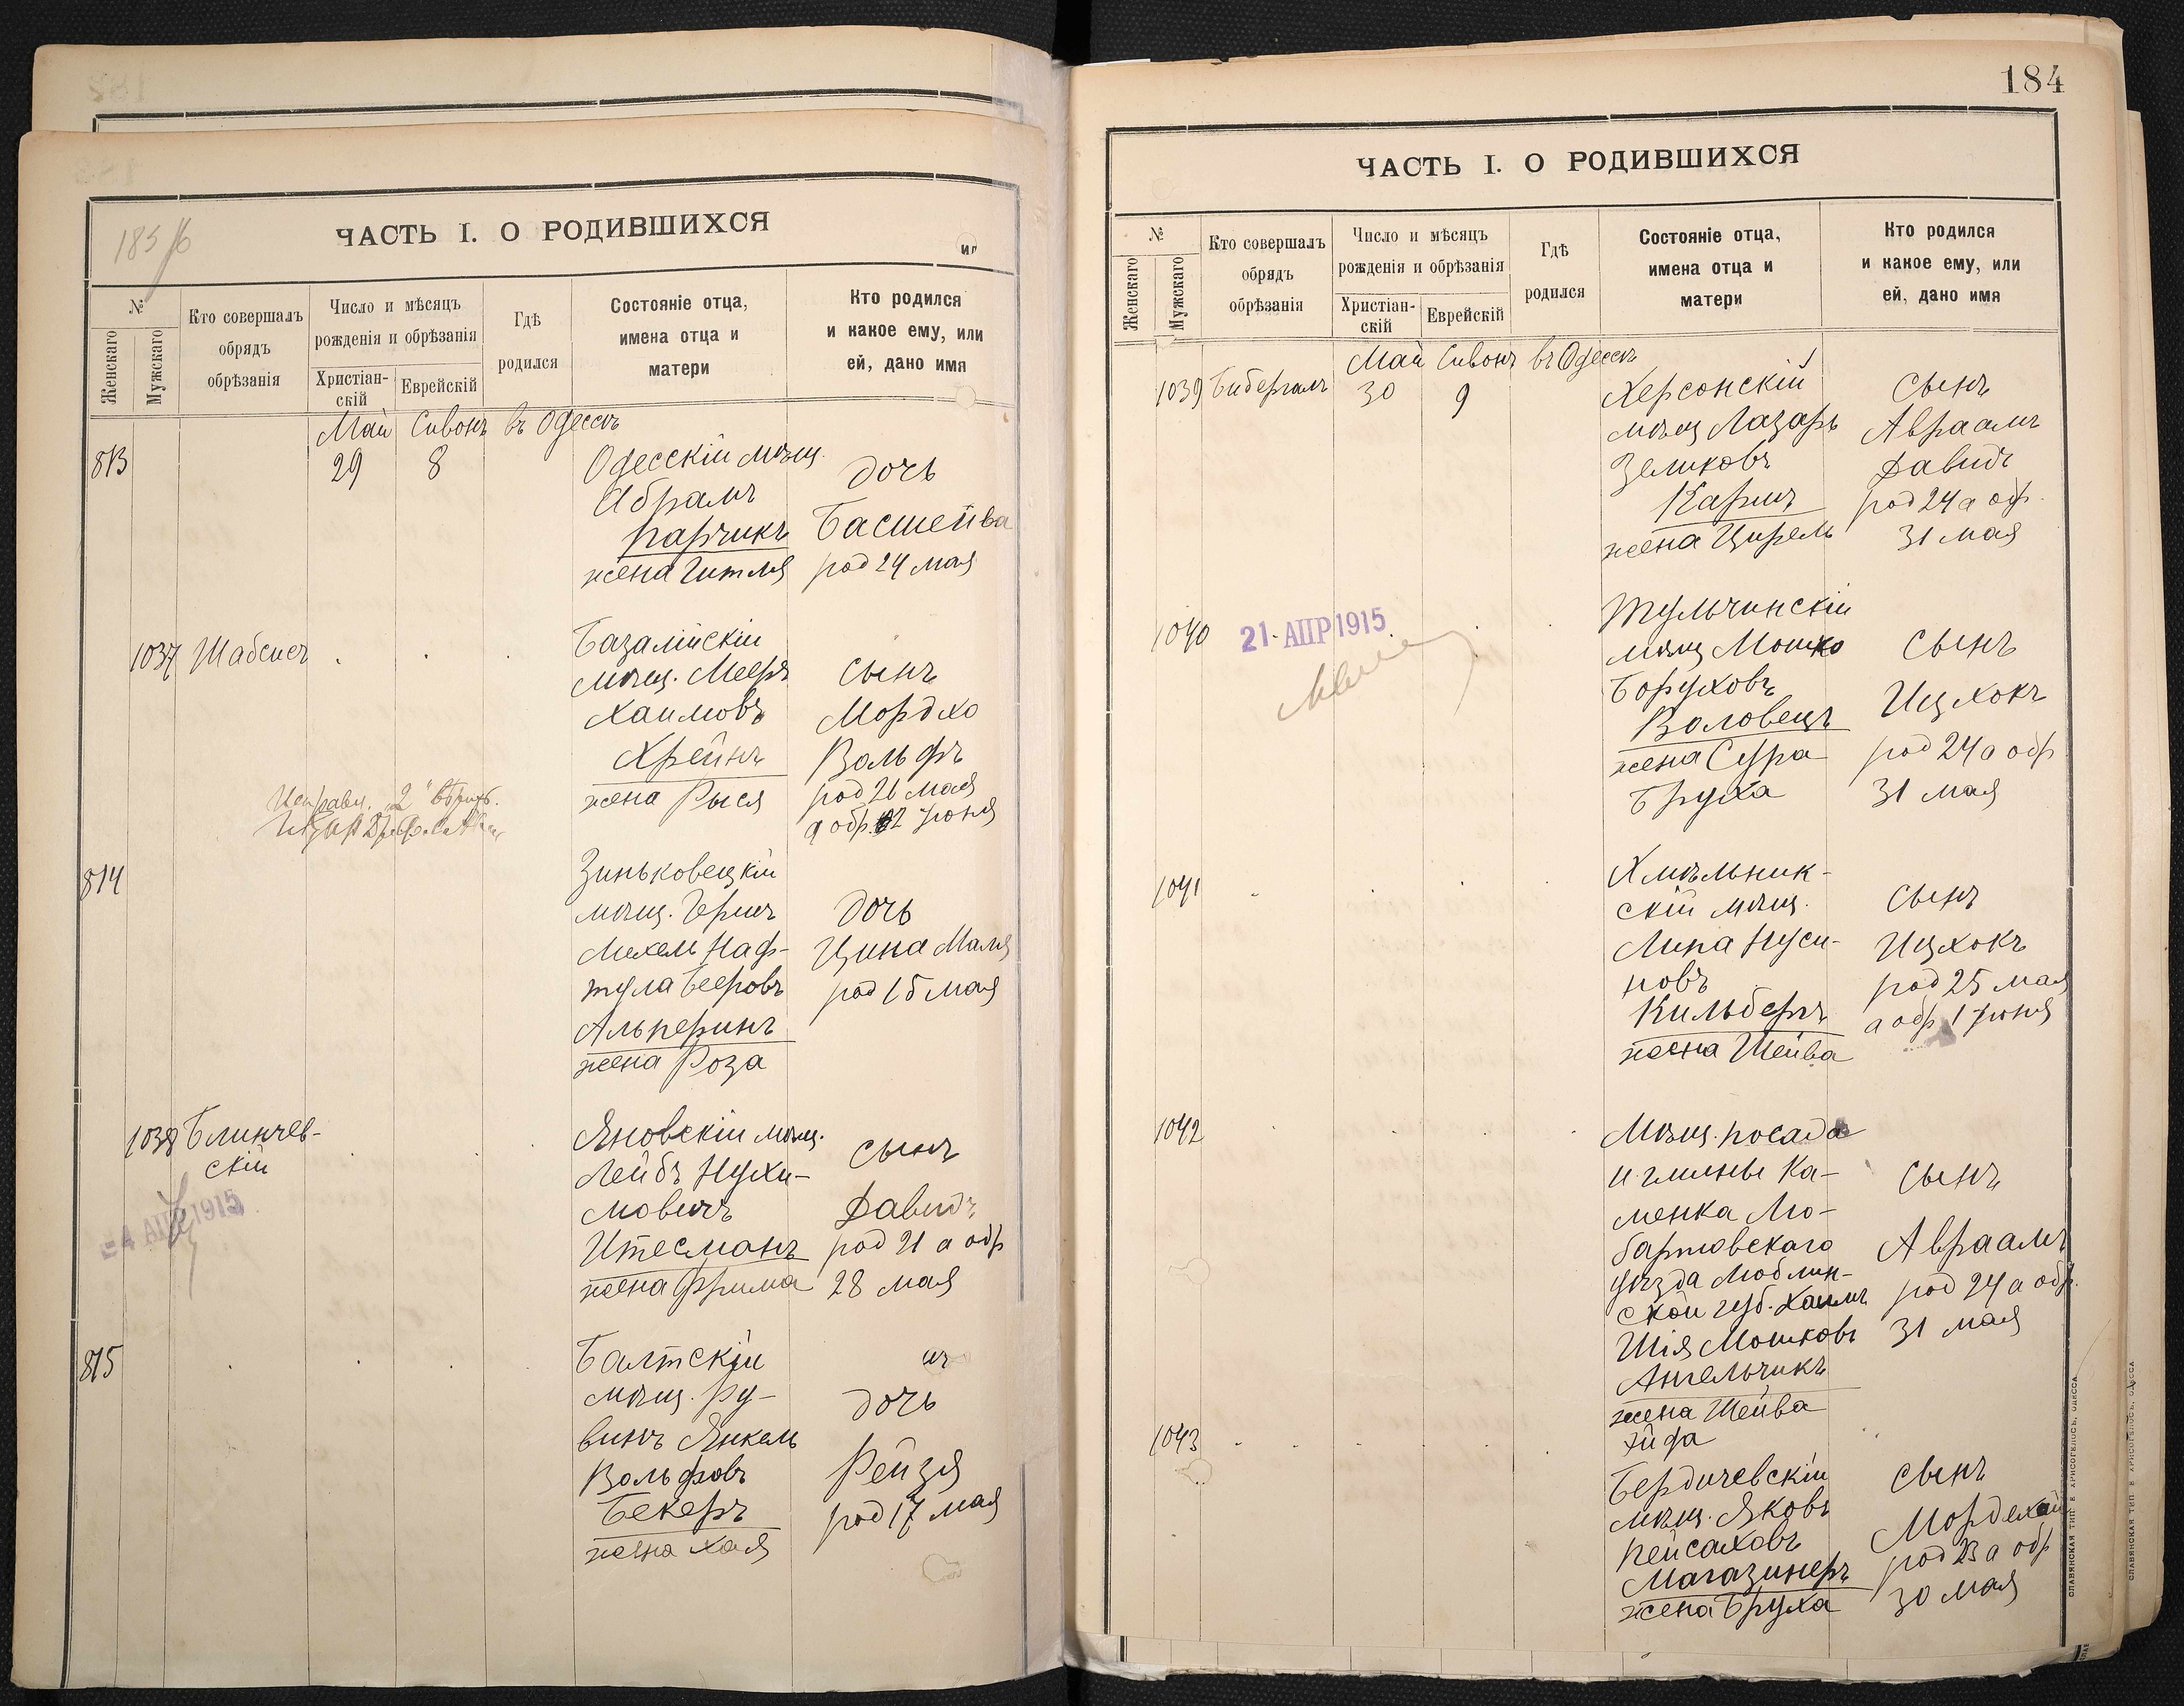 ЧАСТЬ I. О РОДИВШИХСЯ
№
Женскаго
Мужскаго
Кто совершалъ
обрядъ
обрѣзанія
Число и мѣсяцъ
рожденія и обрѣзанія
Христіан-
скій
Еврейскій
Гдѣ
родился
Состояніе отца,
имена отца и
матери
Кто родился
и какое ему, или
ей, дано имя
Май Сивонъ въ Одессѣ
813
29 8
Одесскій мѣщ.
Абрамъ
Парчикъ
жена Гитля
дочь
Басшейва
род 24 мая
1037 Шабсисъ
Базалійскій
мѣщ. Мееръ
Хаимовъ
Хрейнъ
жена Рыся
сынъ
Мордхо
Вольфъ
род 26 мая
а обр. 2 Іюня
814
Зиньковецкій
мѣщ. Гершъ
Мехель Наф-
тула Бееровъ
Альперинъ
жена Роза
дочь
Цина Маля
род 15 мая
1038 Блинчев-
скій
4 АПР 1915
Яновскій мѣщ.
Лейбъ Нухи-
мовичъ
Итесманъ
жена Фрима
сынъ
Давидъ
род 21 а обр
28 мая
815
Балтскій
мѣщ. Ру-
винъ Янкель
Вольфовъ
Бекеръ
жена Хая
дочь
Рейзя
род 17 мая
184
ЧАСТЬ I. О РОДИВШИХСЯ
№
Женскаго
Мужскаго
Кто совершалъ
обрядъ
обрѣзанія
Число и мѣсяцъ
рожденія и обрѣзанія
Христіан-
скій
Еврейскій
Гдѣ
родился
Состояніе отца,
имена отца и
матери
Кто родился
и какое ему, или
ей, дано имя
Май Сивонъ въ Одессѣ
1039 Бибергалъ 30 9
Херсонскій
мѣщ Лазарь
Зеликовъ
Карпъ
жена Цирель
сынъ
Авраамъ
Давидъ
род 24 а обр.
31 мая
1040
21 АПР 1915
Тульчинскій
мѣщ Мошко
Боруховъ
Воловецъ
жена Сура
Бруха
сынъ
Ицхокъ
род 24 а обр
31 мая
1041
Хмѣльник-
скій мѣщ.
Липа Нуси-
новъ
Кильберъ
жена Шейва
сынъ
Ицхокъ
род 25 мая
а обр 1 Іюня
1042
Мѣщ. посада
и глины Ка-
менка Лю-
бартовскаго
уѣзда Люблин-
ской губ. Хаимъ
Шія Мошковъ
Ангельчикъ
жена Шейва
сынъ
Авраамъ
род 24 а обр.
31 мая
1043
Бердичевскій
мѣщ. Яковъ
Пейсаховъ
Магазинеръ
жена Бруха
сынъ
Мордехай
род 23 а обр
30 мая
СЛАВЯНСКАЯ ТИП. Е ХРИСОГЕЛОСЪ, ОДЕССА.
СЛАВЯНСКАЯ ТИП. Е ХРИСОГЕЛОСЪ, ОДЕССА